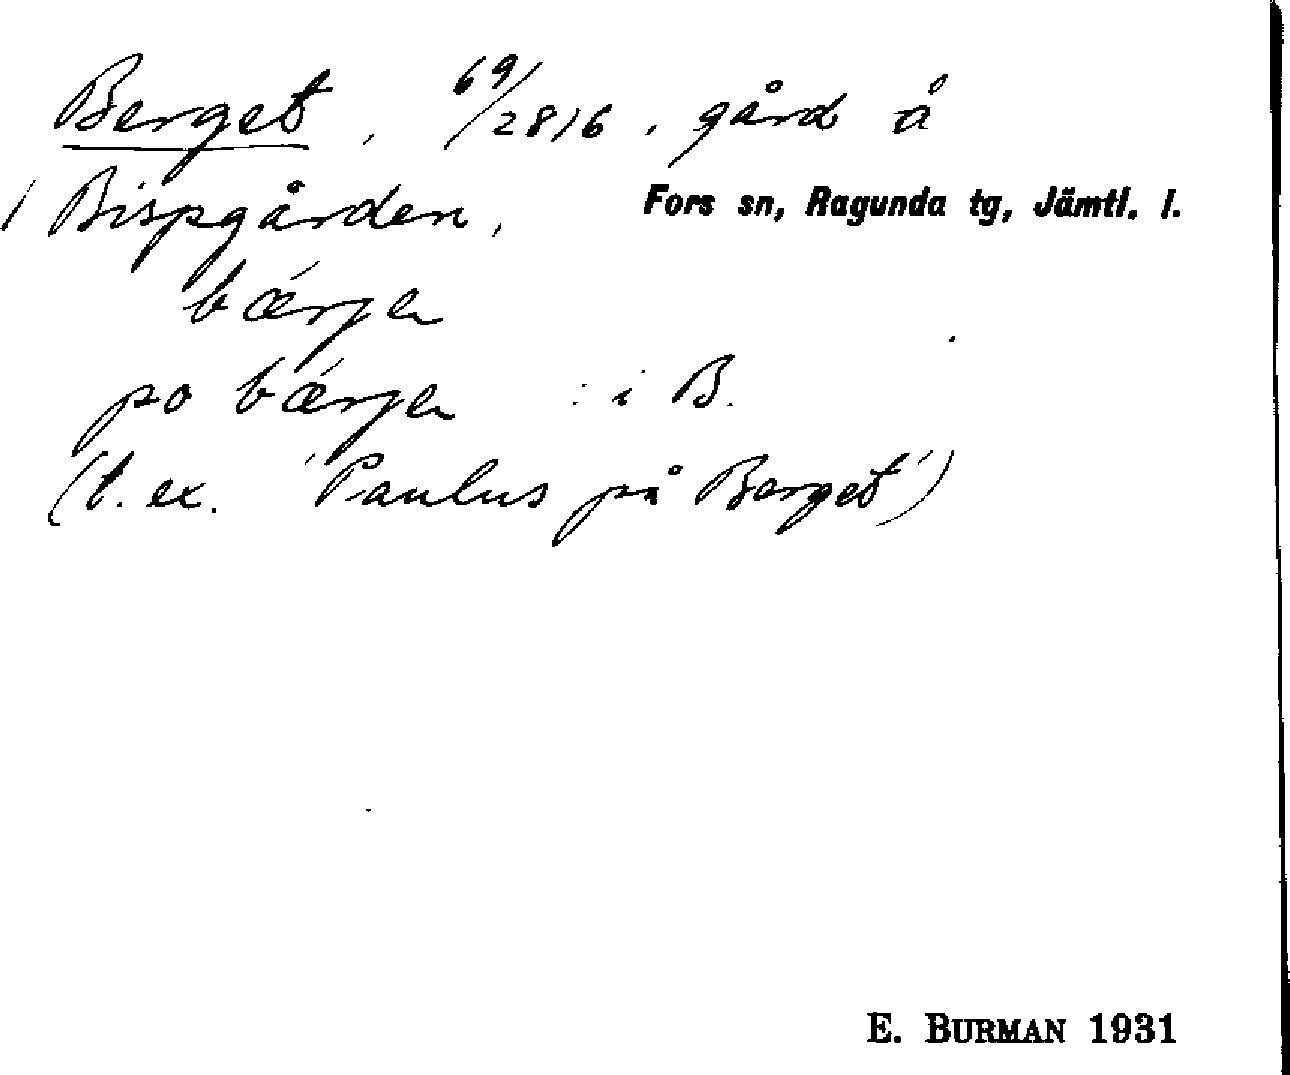 Berget, 69/2816, gård å
/ Bispgården, Fors sn, Ragunda tg, Jämtl. l.
bǽrjen
po bǽrjen : i B.
(t. ex. 'Paulus på Berget')
E. BURMAN 1931